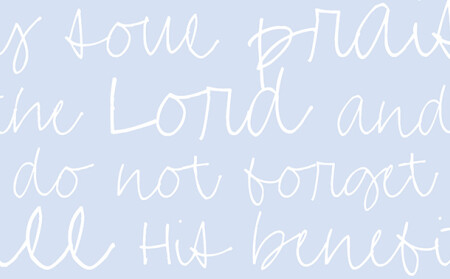 y soul prais
the Lord and
do not forget
all His benefi